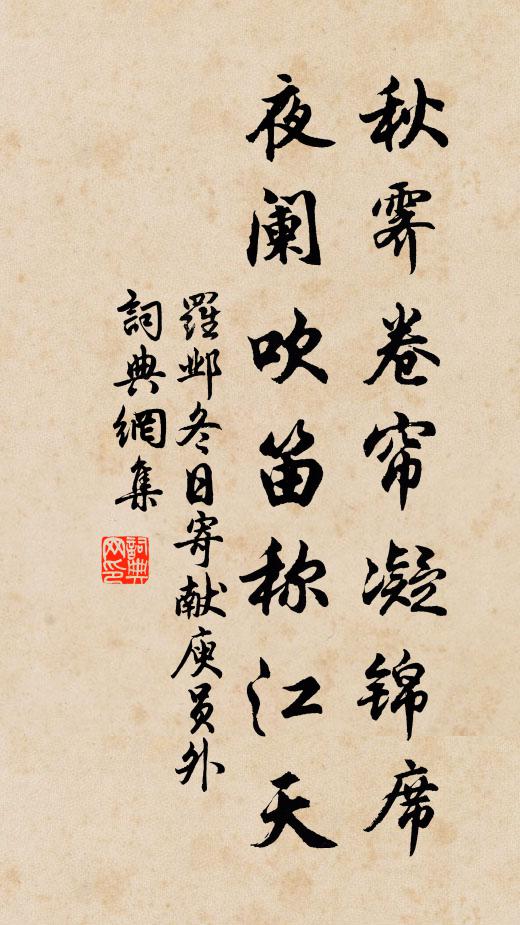 秋霁卷帘凝锦席
夜阑吹笛称江天
羅邺冬日寄献庾员外
詞典網集
詞典网印